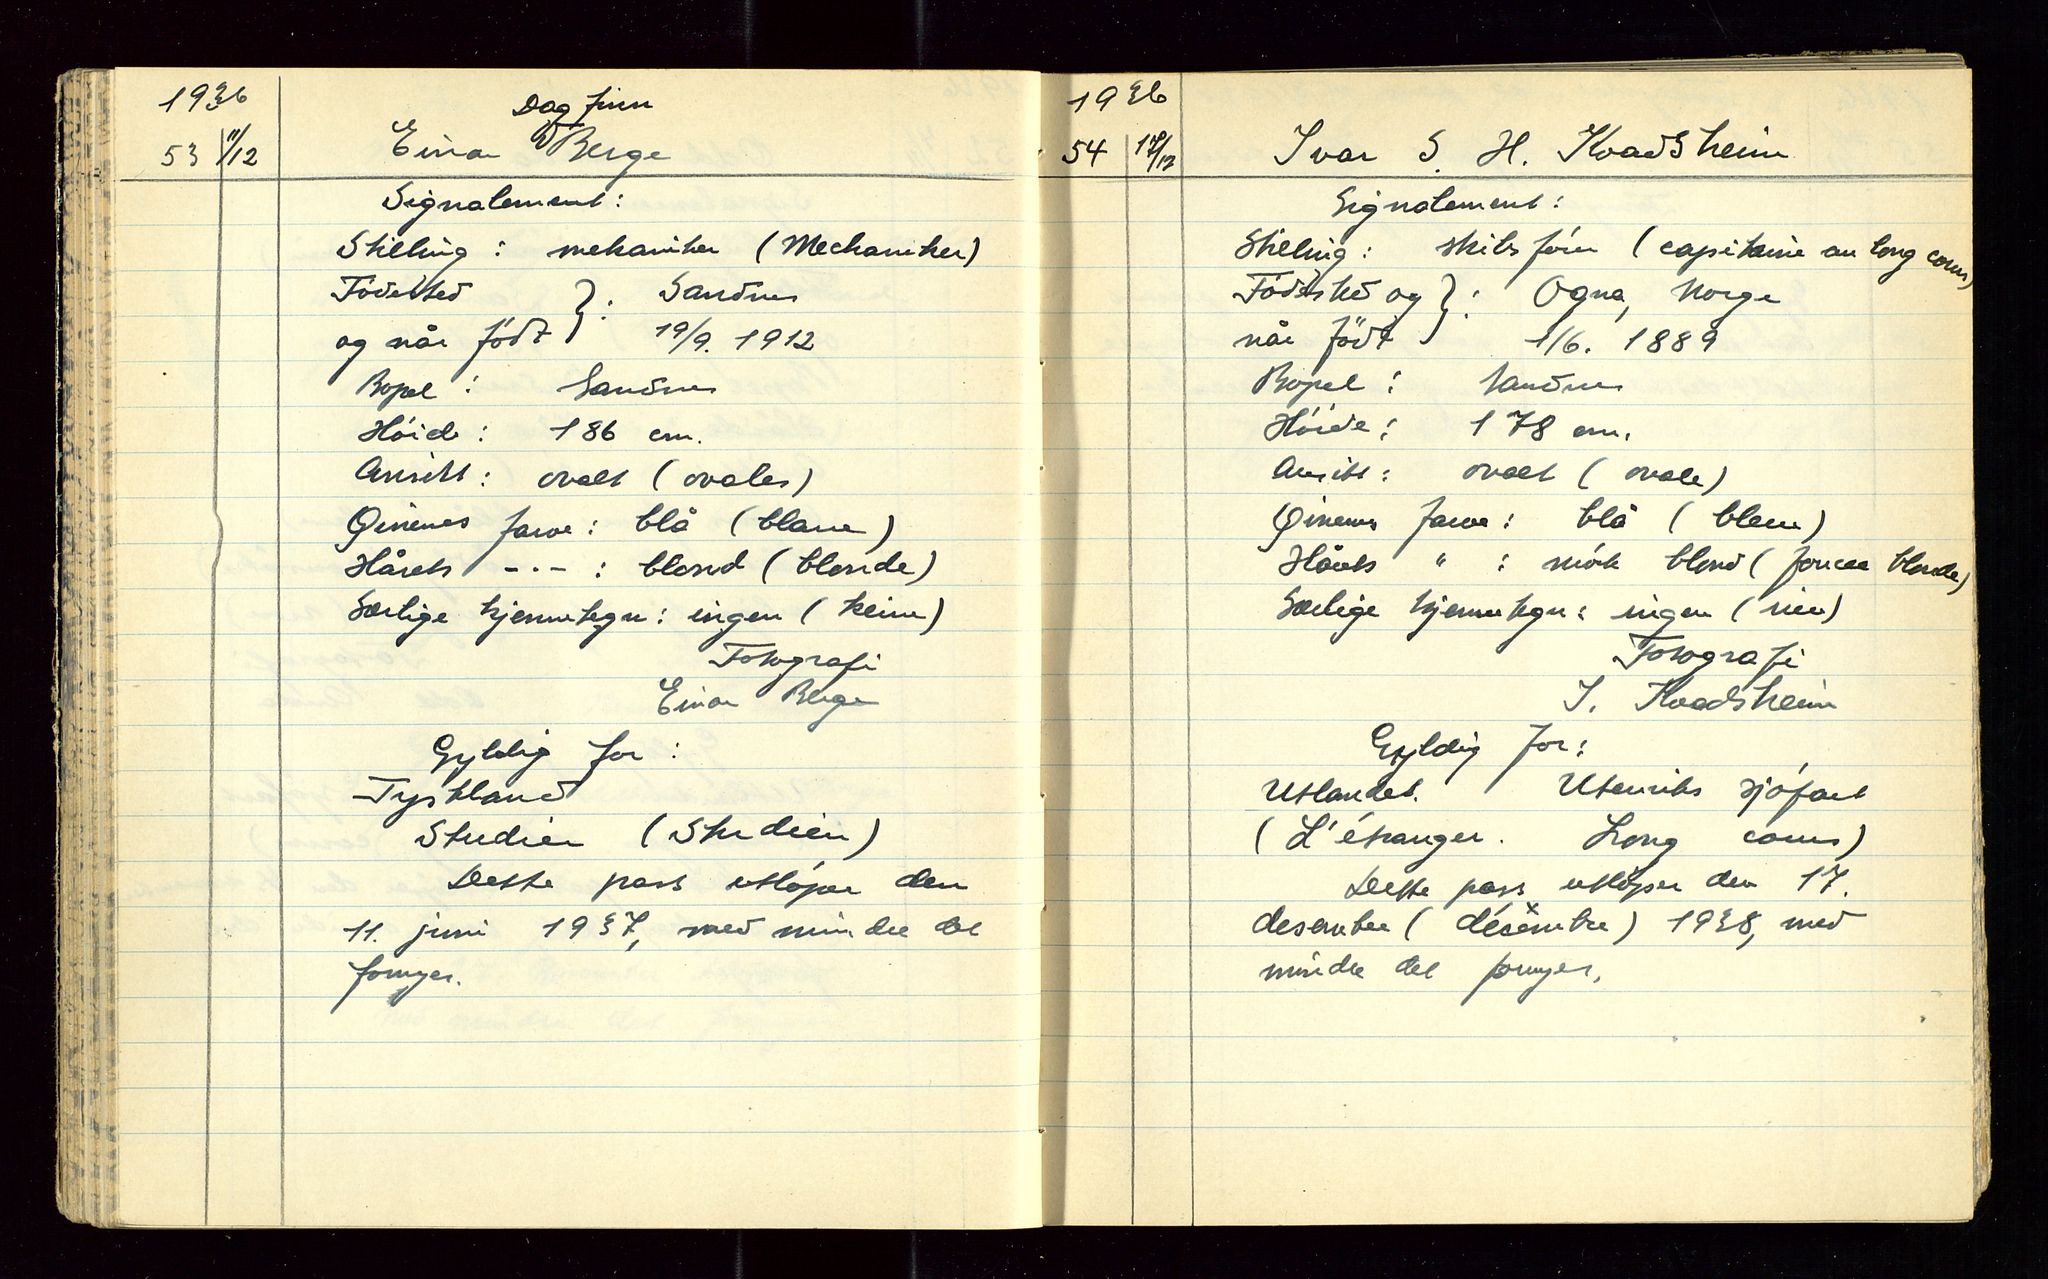 1936
Dagfinn
53 11/12 Einar Berge
Signalement:
Stilling : mekaniker (Mechaniker)
Fødested } : Sandnes
og når født 19/9. 1912
Bopel : Sandnes
Høide : 186 cm.
Ansikt : ovalt (ovales)
Øinenes farve : blå (blaue)
Hårets -"- : blond (blonde)
Særlige kjennetegn : ingen (keine)
Fotografi
Einar Berge
Gyldig for :
Tyskland
Studier (Studien)
Dette pass utløper den
11. juni 1937, med mindre det
fornyes.
1936
54 17/12 Ivar S. H. Kvadsheim
Signalement :
Stilling : skibsfører (capitaine au long cours)
Fødested og } : Ogna, Norge
når født 1/6. 1889
Bopel : Sandnes
Høide : 178 cm.
Ansikt : ovalt (ovale)
Øinenes farve : blå (bleue)
Hårets " : mørk blond (foncee blonde)
Særlige kjennetegn : ingen (rien)
Fotografi
I. Kvadsheim
Gyldig for :
Utlandet. Utenriks sjøfart
(L'étranger. Long cours)
Dette pass utløper den 17.
desember (décembre) 1938, med
mindre det fornyes.